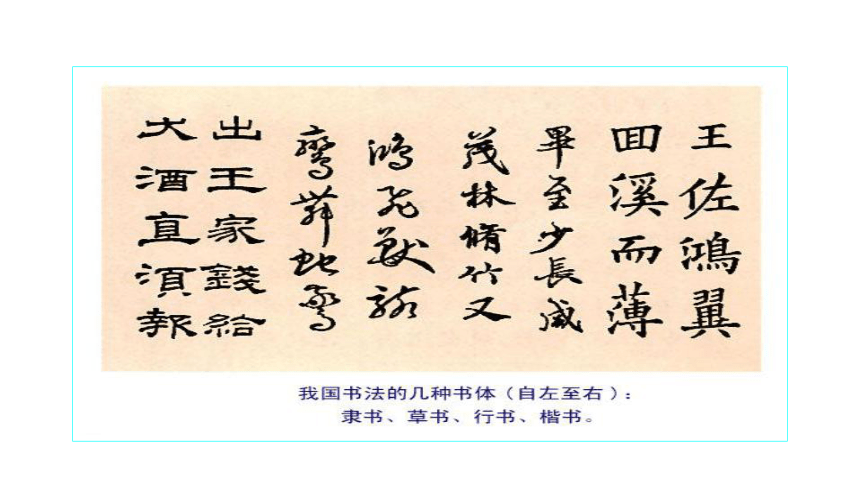 王佐鴻翼
囬溪而薄
畢至少長咸
茂林脩竹又
鴻飛獸駭
鸞舞蛇驚
出王家錢給
大酒直須報
我国书法的几种书体（自左至右）：
隶书、草书、行书、楷书。